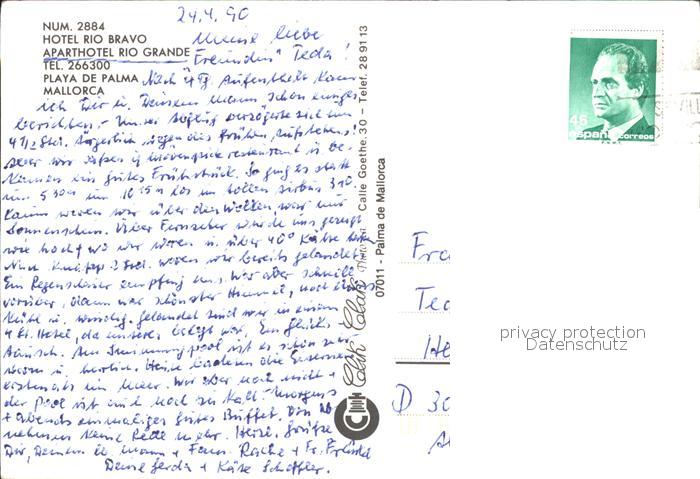 24.4.90
NUM. 2884
HOTEL RIO BRAVO
APARTHOTEL RIO GRANDE
TEL. 266300
PLAYA DE PALMA
MALLORCA
Meine liebe
"Freundin" Teda!
Nach 4 Tg. Aufenthalt kann
ich Dir u. Deinem Mann schon einiges
berichten. - Unser Abflug verzögerte sich um
4 1/2 Std. Ärgerlich wegen des frühen Aufstehens!
aber wir saßen im Mövenpick restaurant u. be-
kamen ein gutes Frühstück. So ging es statt
um 5 30 um 10 15 los im tollen
Kaum waren wir über den Wolken, war nur
Sonnenschein. Über Fernseher wurde uns gezeigt
wie hoch + wo wir waren u. über 40° Kälte
Nun knapp 2 Std. waren wir bereits gelandet.
Ein Regenschauer empfing uns, war aber schnell
vorüber, dann war schönster Himmel, noch
kühl u. windig. gelandet sind wir in einem
4 St. Hotel, da unseres belegt war. Ein Glücks-
tausch. Am Swimmingpool ist es schön
warm u. herrlich. Heute badeten die Ersten
erstmals im Meer. Wir aber noch nicht +
der Pool ist auch noch zu kalt. Morgens
+ abends einmaliges gutes Büffet. Von
nehmen keine Rede mehr. Herzl. Grüße
Dir, Deinem lb. Mann + Fam. +
Deine Gerda + Käte Scheffler.
Clik Clak
Calle Goethe, 30 - Telef. 28 91 13
07011 - Palma de Mallorca
45
españa correos
Fra
Ted
He
D 30
privacy protection
Datenschutz